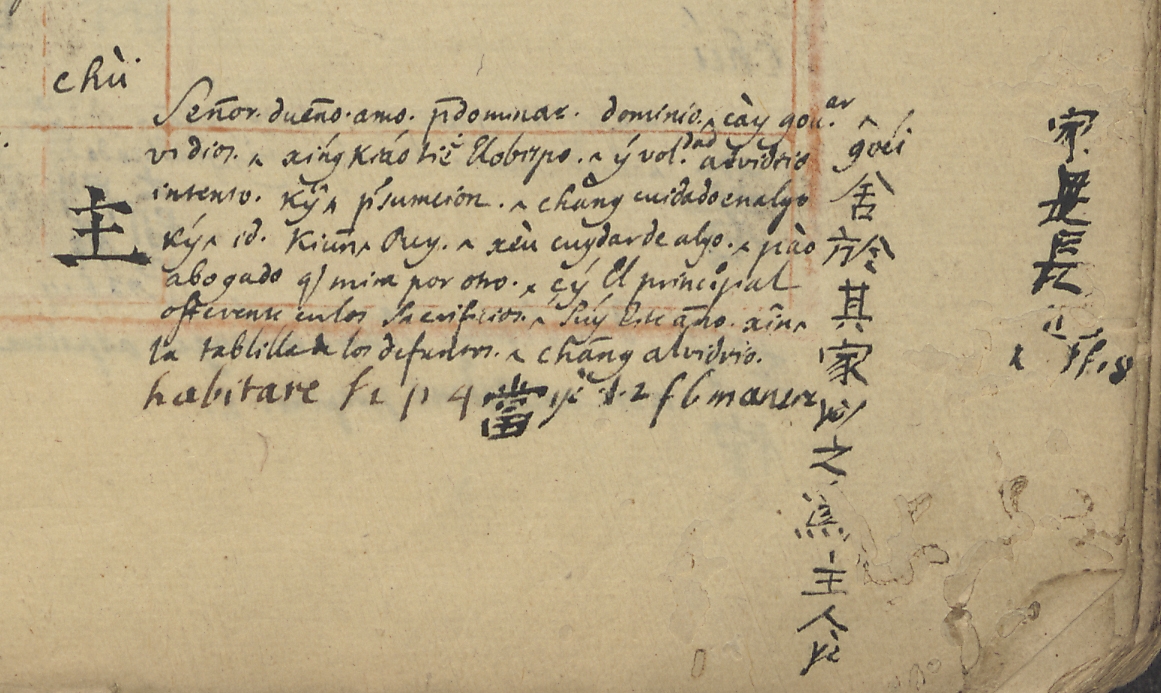 chù
主
Señor. dueño. amo. p̄dominar. dominio. ^ cày gou.ar
vi dios. ^ xińg kiáo hiĕ El obispo. ^ ý vol.dad alvidrio
intento. Kỹ ^ p̄sumcion. ^ chāng cuidado en algo
Ký ^ id. Kiūn ^ Rey. ^ xèu cuydar de algo. ^ pào
abogado q̄ mira por otro. ^ çý El principal
offerente en los Sacrificios. ^ Súy este año. xîn ^
la tablilla de los defuntos. ^ chāng alvidrio.
habitare f 2 p 4 當 f 6 manere
^ goéi
舍於其家
之為主人
家
長